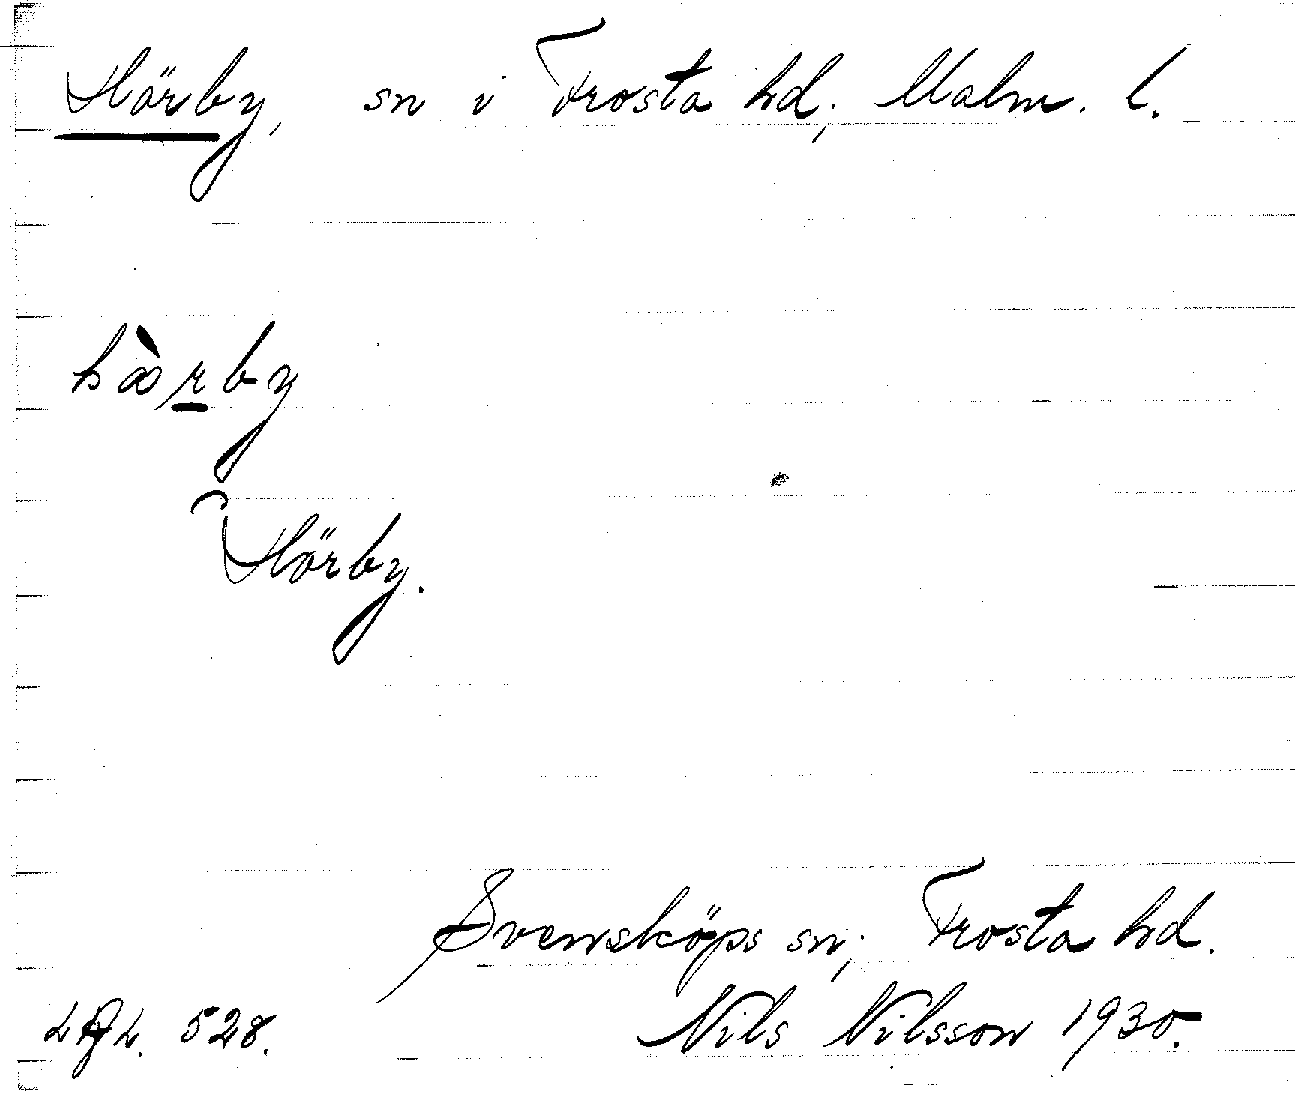 Hörby, sn i Frosta hd, Malm. l.
hàrby
Hörby.
Svensköps sn, Frosta hd.
528. Nils Nilsson 1930.